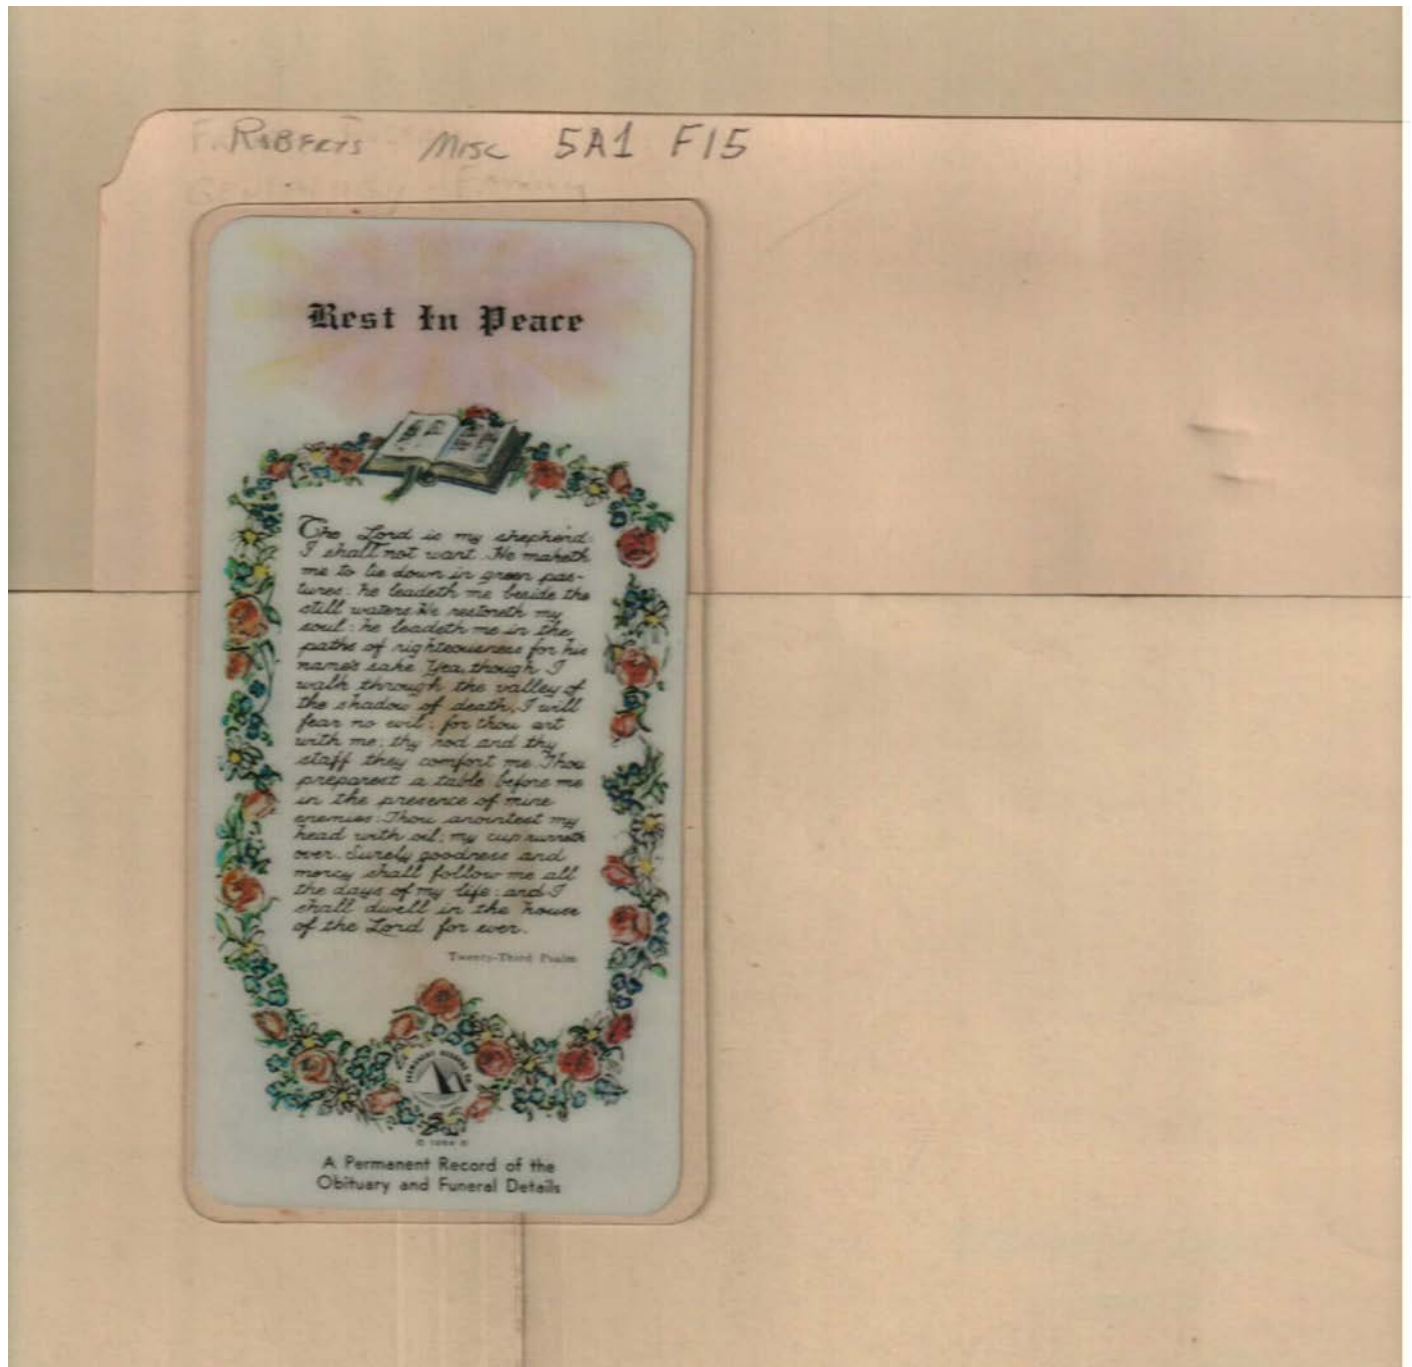 Roberts Misc 5A1 F15
Rest In Peace
The Lord is my shepherd:
I shall not want. He maketh
me to lie down in green pas-
tures: he leadeth me beside the
still waters. He restoreth my
soul: he leadeth me in the
paths of righteousness for his
name's sake. Yea, though I
walk through the valley of
the shadow of death, I will
fear no evil: for thou art
with me; thy rod and thy
staff they comfort me. Thou
preparest a table before me
in the presence of mine
enemies: Thou anointest my
head with oil; my cup runneth
over. Surely goodness and
mercy shall follow me all
the days of my life: and I
shall dwell in the house
of the Lord for ever.
Twenty-Third Psalm
A Permanent Record of the
Obituary and Funeral Details